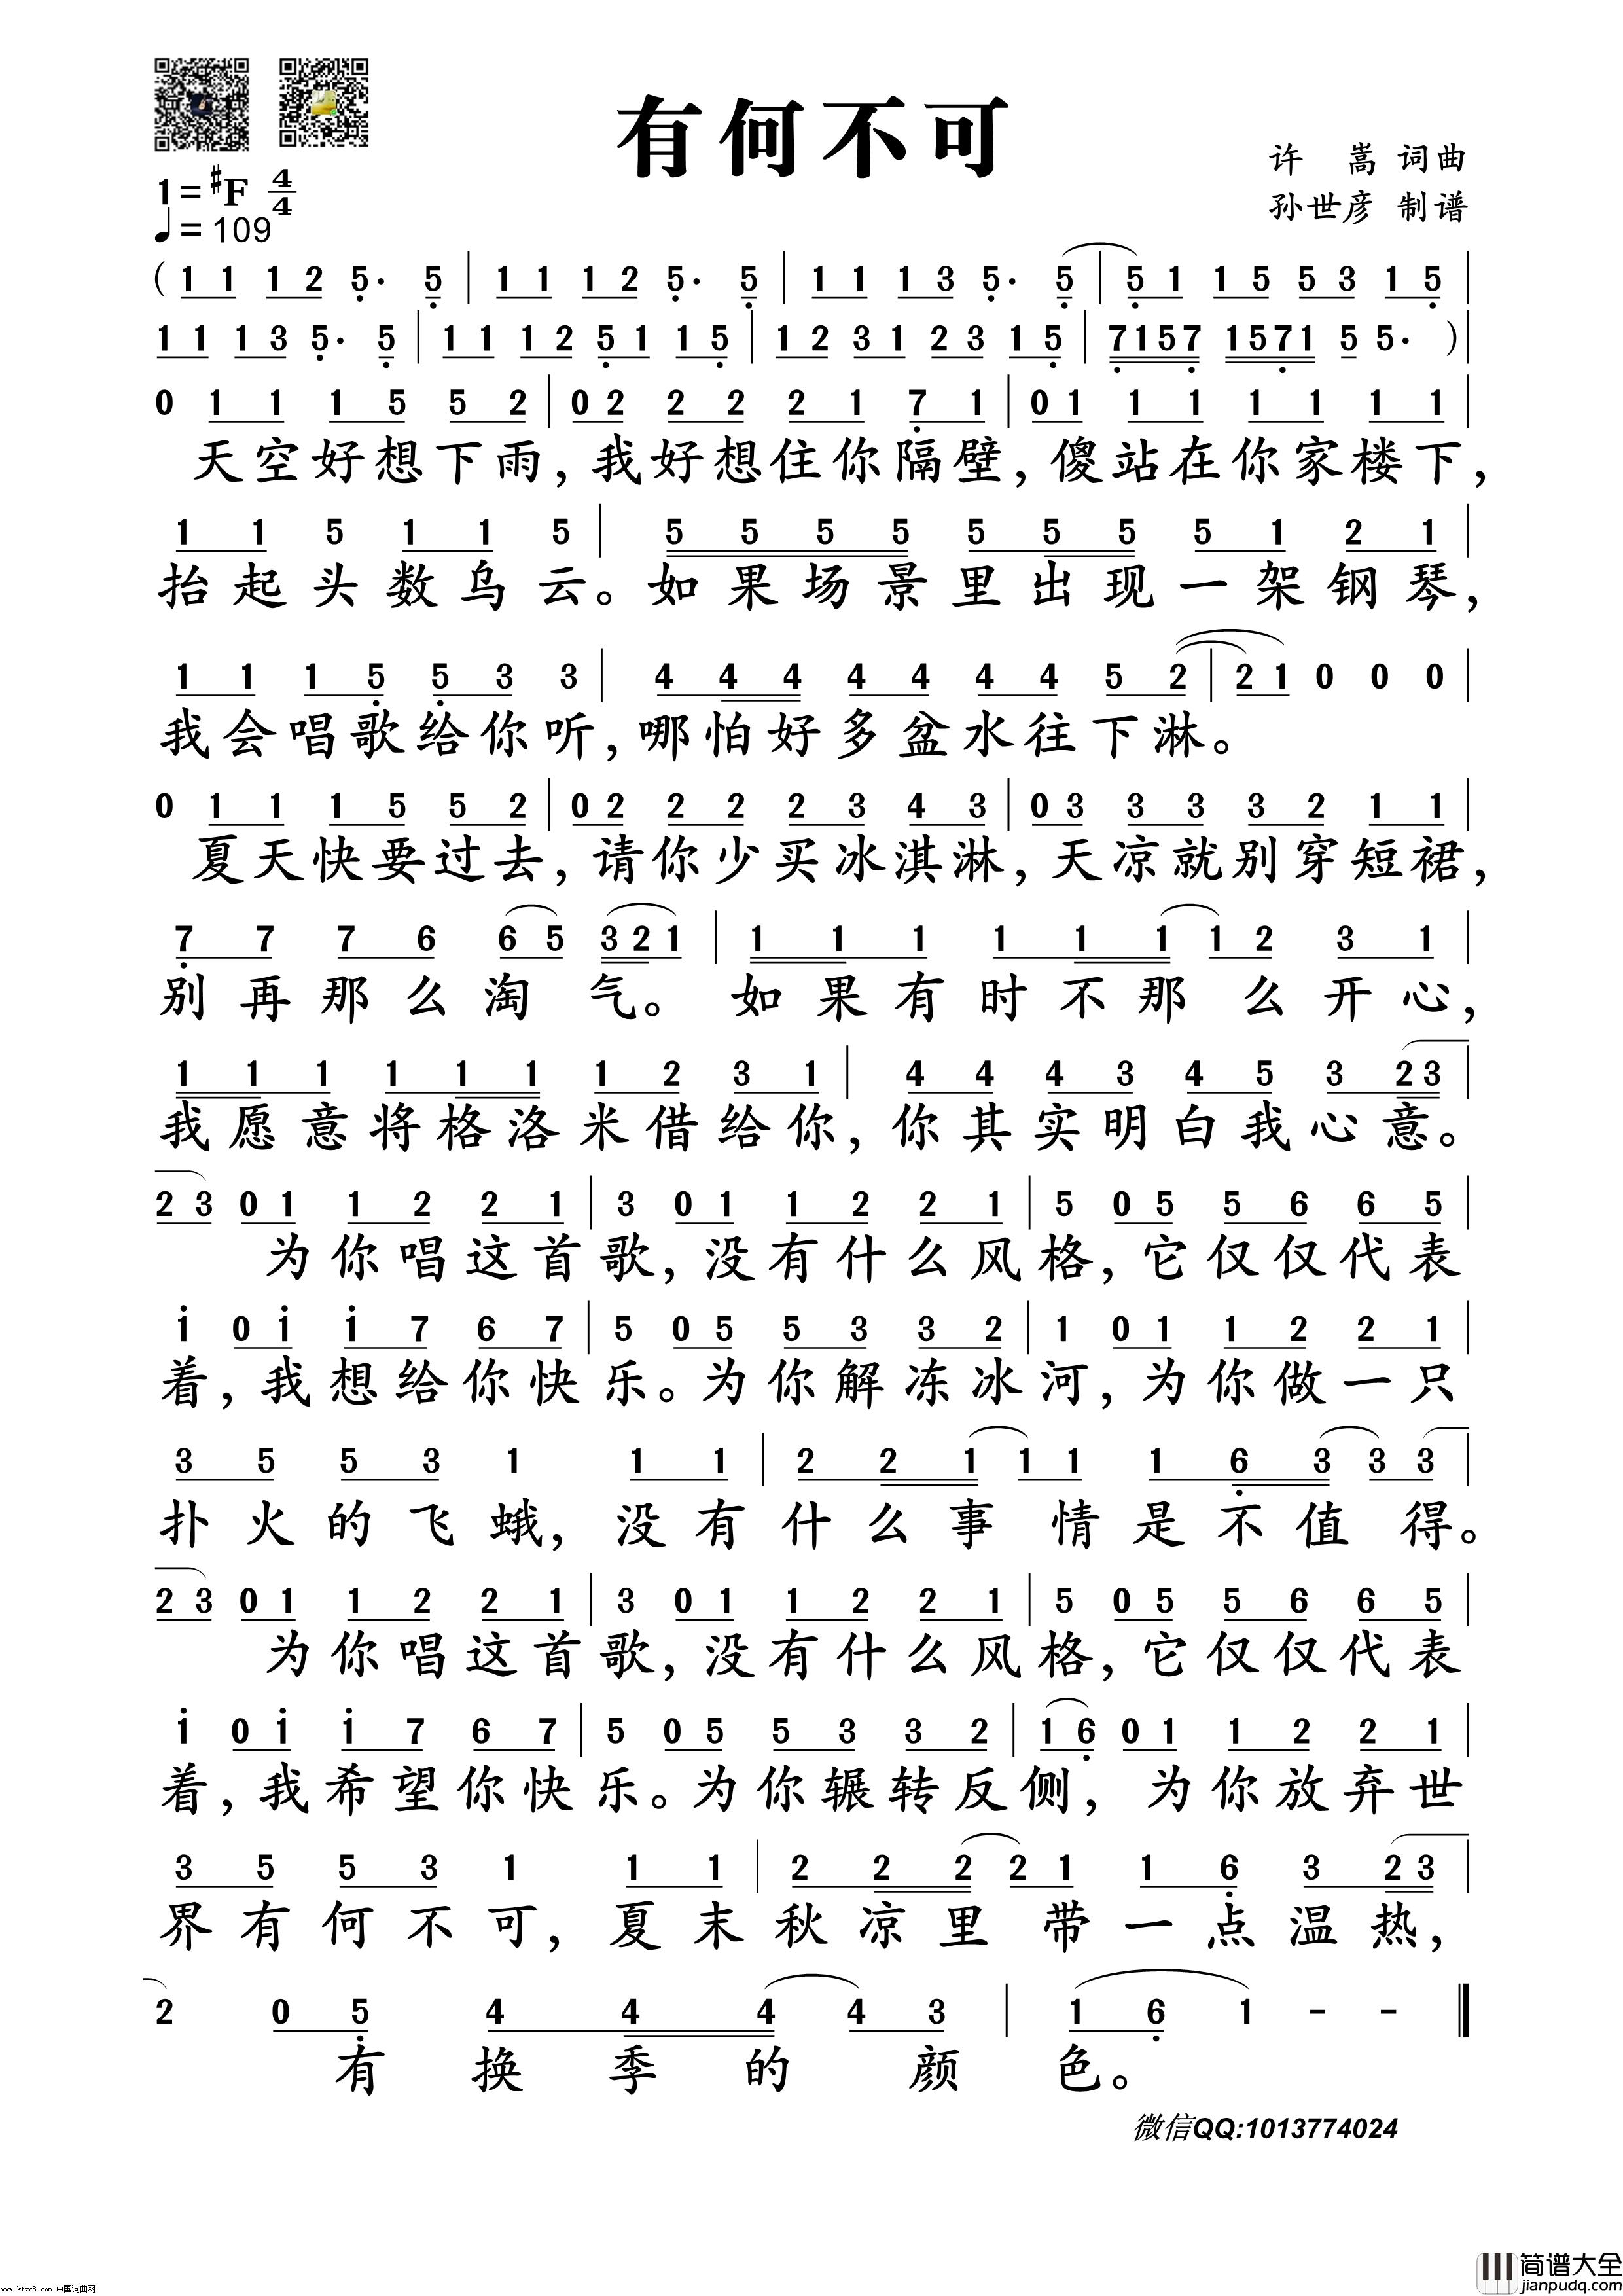 有何不可
许 嵩 词曲
孙世彦 制谱
1=#F 4/4
♩=109
( 1 1 1 2 5· 5 | 1 1 1 2 5· 5 | 1 1 1 3 5· 5 | 5 1 1 5 5 3 1 5 |
1 1 1 3 5· 5 | 1 1 1 2 5 1 1 5 | 1 2 3 1 2 3 1 5 | 7 1 5 7 1 5 7 1 5 5· ) |
0 1 1 1 5 5 2 | 0 2 2 2 2 1 7 1 | 0 1 1 1 1 1 1 1 |
天空好想下雨,我好想住你隔壁,傻站在你家楼下,
1 1 5 1 1 5 | 5 5 5 5 5 5 5 5 1 2 1 |
抬起头数乌云。如果场景里出现一架钢琴,
1 1 1 5 5 3 3 | 4 4 4 4 4 4 4 5 2 | 2 1 0 0 0 |
我会唱歌给你听,哪怕好多盆水往下淋。
0 1 1 1 5 5 2 | 0 2 2 2 2 3 4 3 | 0 3 3 3 3 2 1 1 |
夏天快要过去,请你少买冰淇淋,天凉就别穿短裙,
7 7 7 6 6 5 3 2 1 | 1 1 1 1 1 1 1 2 3 1 |
别再那么淘气。如果有时不那么开心,
1 1 1 1 1 1 1 2 3 1 | 4 4 4 3 4 5 3 2 3 |
我愿意将格洛米借给你,你其实明白我心意。
2 3 0 1 1 2 2 1 | 3 0 1 1 2 2 1 | 5 0 5 5 6 6 5 |
为你唱这首歌,没有什么风格,它仅仅代表
i 0 i i 7 6 7 | 5 0 5 5 3 3 2 | 1 0 1 1 2 2 1 |
着,我想给你快乐。为你解冻冰河,为你做一只
3 5 5 3 1 1 1 | 2 2 1 1 1 1 6 3 3 3 |
扑火的飞蛾,没有什么事情是不值得。
2 3 0 1 1 2 2 1 | 3 0 1 1 2 2 1 | 5 0 5 5 6 6 5 |
为你唱这首歌,没有什么风格,它仅仅代表
i 0 i i 7 6 7 | 5 0 5 5 3 3 2 | 1 6 0 1 1 2 2 1 |
着,我希望你快乐。为你辗转反侧,为你放弃世
3 5 5 3 1 1 1 | 2 2 2 2 1 1 6 3 2 3 |
界有何不可,夏末秋凉里带一点温热,
2 0 5 4 4 4 4 3 | 1 6 1 - - ‖
有换季的颜色。
微信QQ:1013774024
www.ktvc8.com 中国词曲网
简谱大全
jianpudq.com